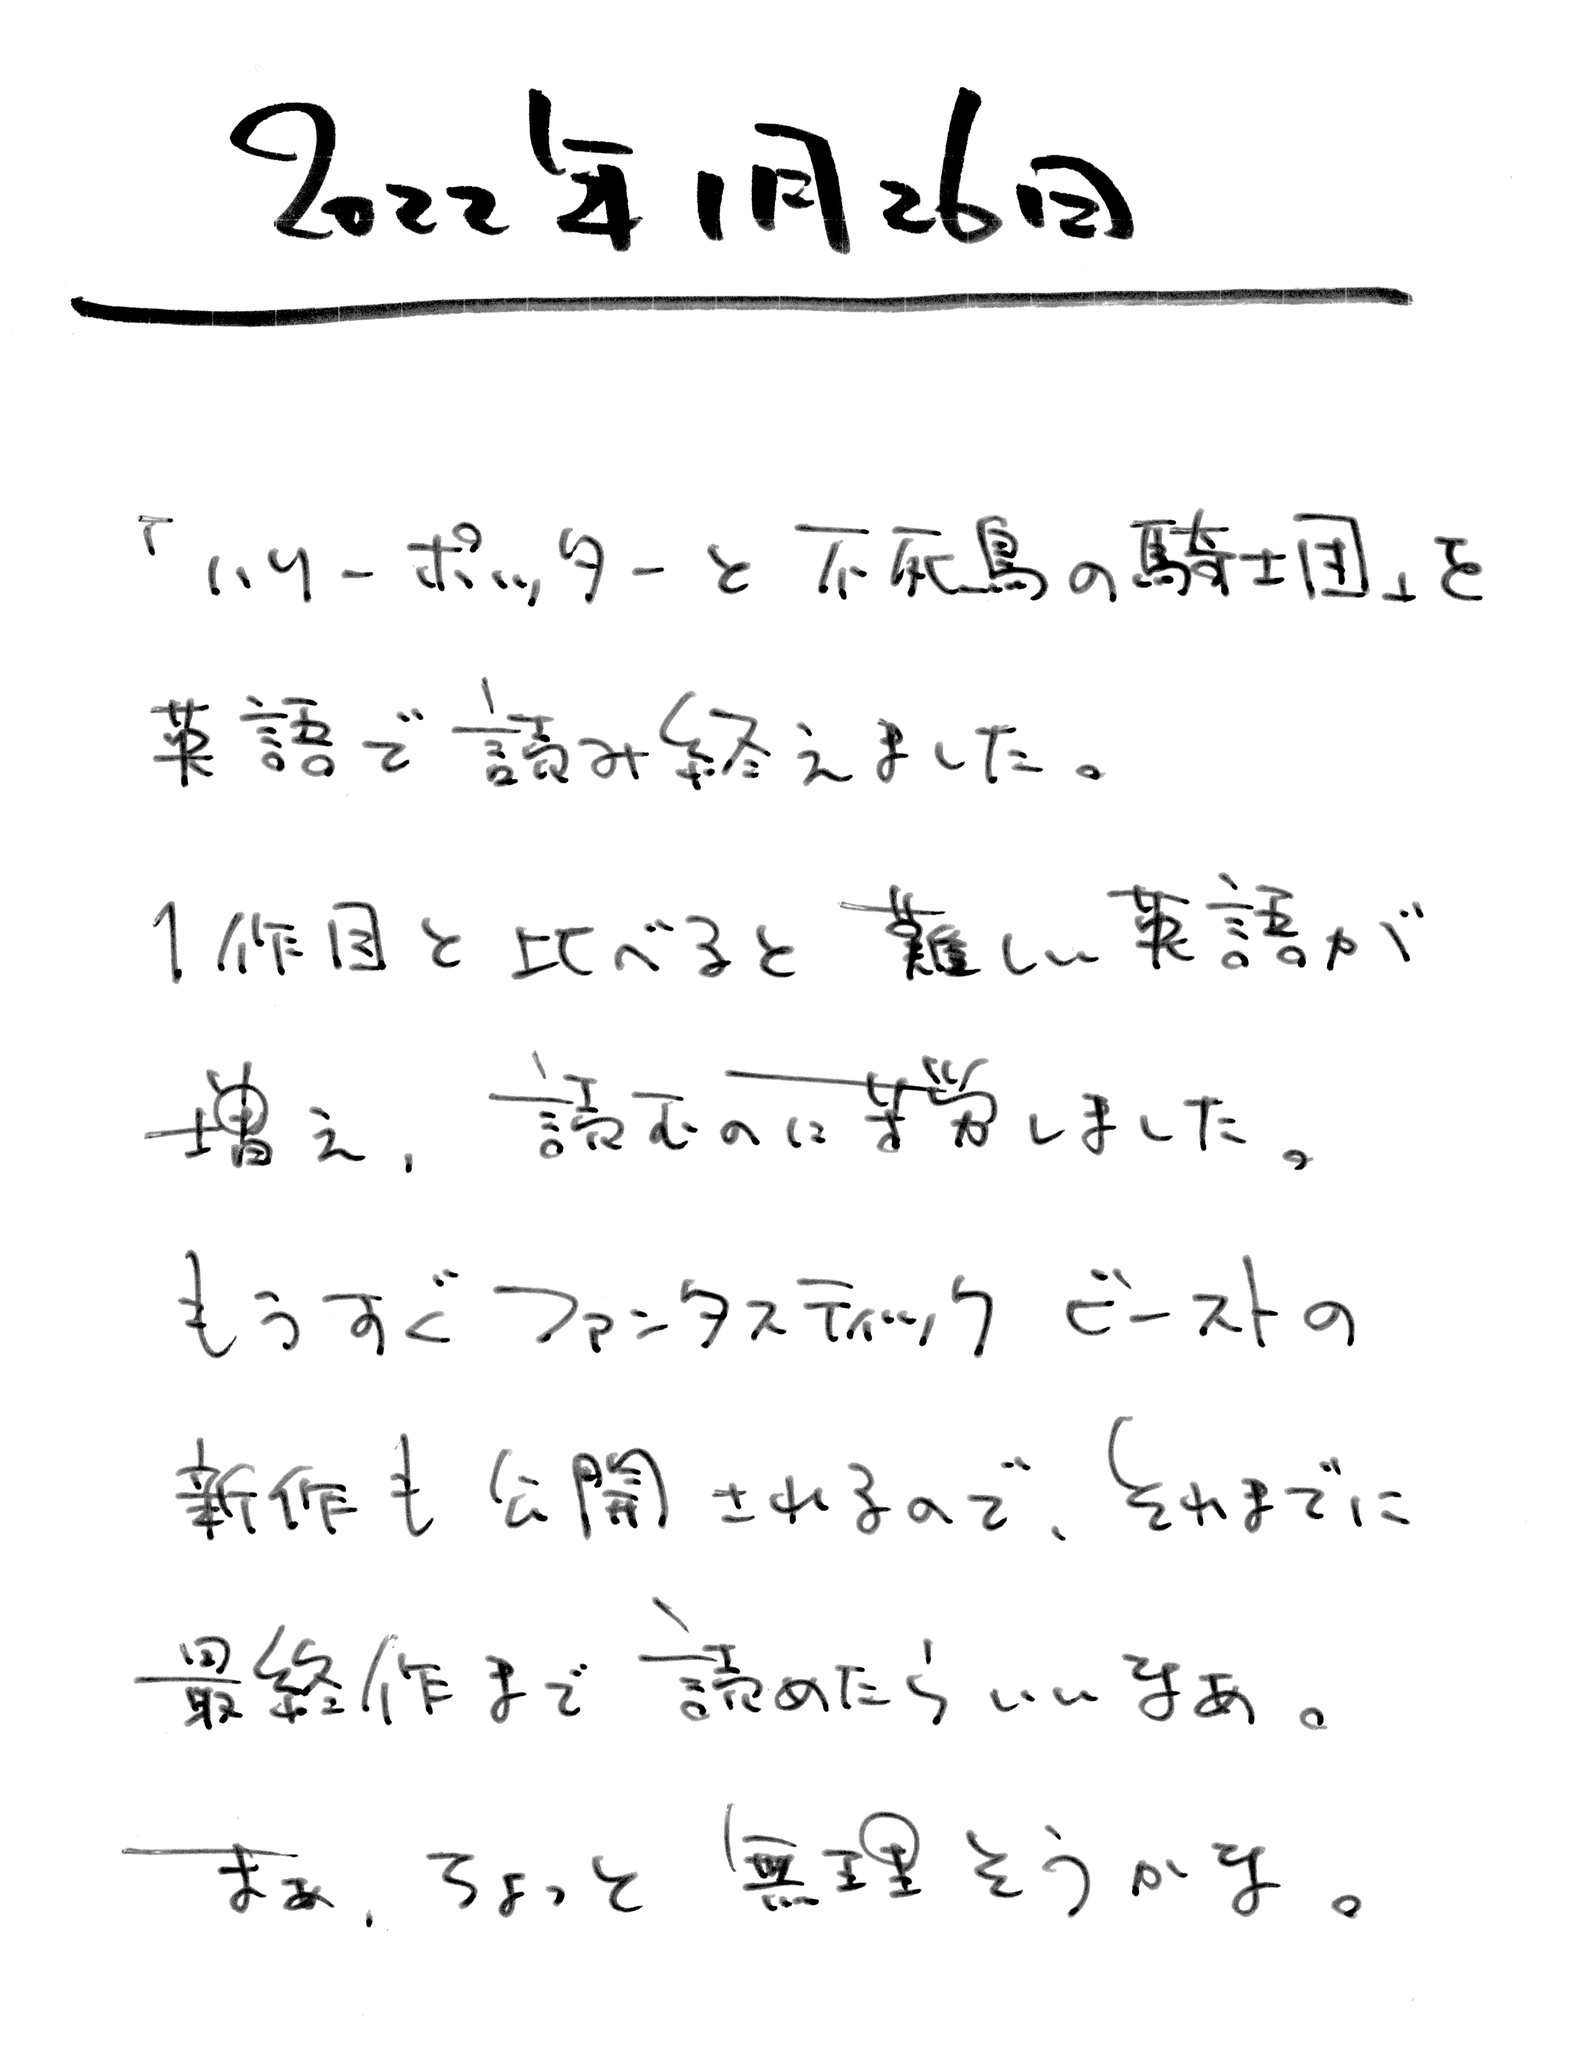 2022年1月26日
「ハリーポッターと不死鳥の騎士団」を
英語で読み終えました。
1作目と比べると難しい英語が
増え、読むのに苦労しました。
もうすぐファンタスティックビーストの
新作も公開されるので、それまでに
最終作まで読めたらいいなあ。
まぁ、ちょっと無理そうかな。